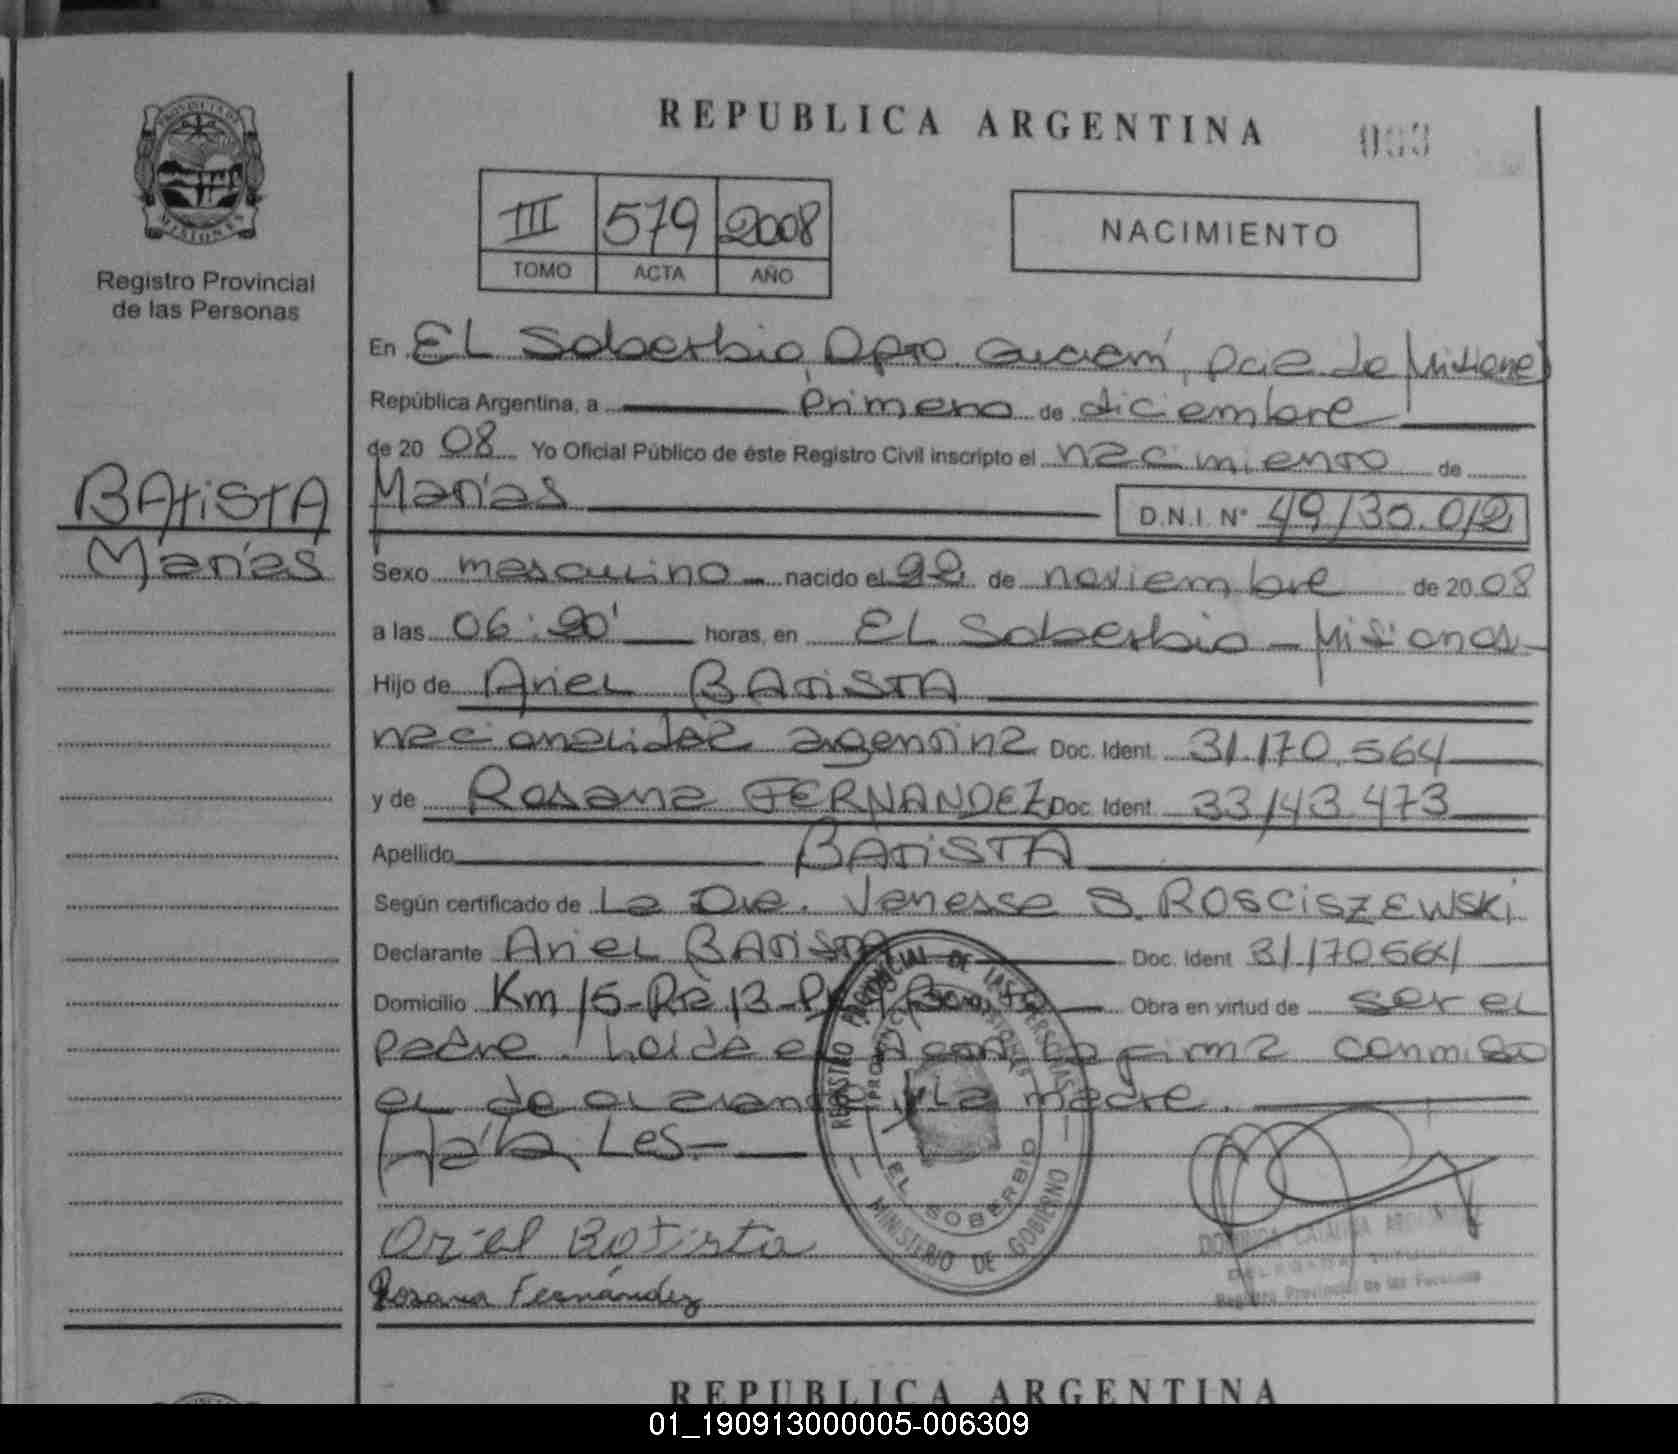 REPUBLICA ARGENTINA
PROVINCIA DE
MISIONES
Registro Provincial
de las Personas
III 579 2008
TOMO ACTA AÑO
NACIMIENTO
En EL Soberbio, Dpto Guaraní, pcia de Misiones
República Argentina, a primero de diciembre
de 20 08 Yo Oficial Público de éste Registro Civil inscripto el nacimiento de
BATISTA
Matías
Matías
D.N.I. N° 49.130.012
Sexo masculino nacido el 22 de noviembre de 20 08
a las 06:20' horas, en EL Soberbio - Misiones
Hijo de Ariel BATISTA
nacionalidad argentina Doc. Ident. 31.170.564
y de Rosana FERNANDEZ Doc. Ident. 33.143.473
Apellido BATISTA
Según certificado de La Dra. Vanessa S. ROSCISZEWSKI
Declarante Ariel BATISTA Doc. Ident 31.170564
Domicilio Km 15-Rta 13 Obra en virtud de ser el
padre. Leída el Acta la firma conmigo
el declarante y La madre.
REGISTRO PROVINCIAL DE LAS PERSONAS
MINISTERIO DE GOBIERNO
EL SOBERBIO
Ariel Batista
Rosana Fernández
Registro Provincial de las Personas
REPUBLICA ARGENTINA
01_190913000005-006309